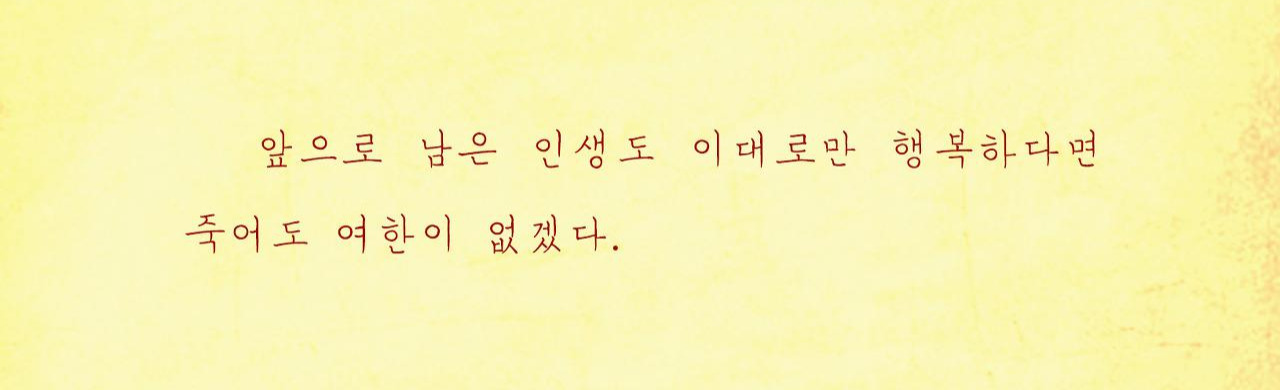 앞으로 남은 인생도 이대로만 행복하다면
죽어도 여한이 없겠다.